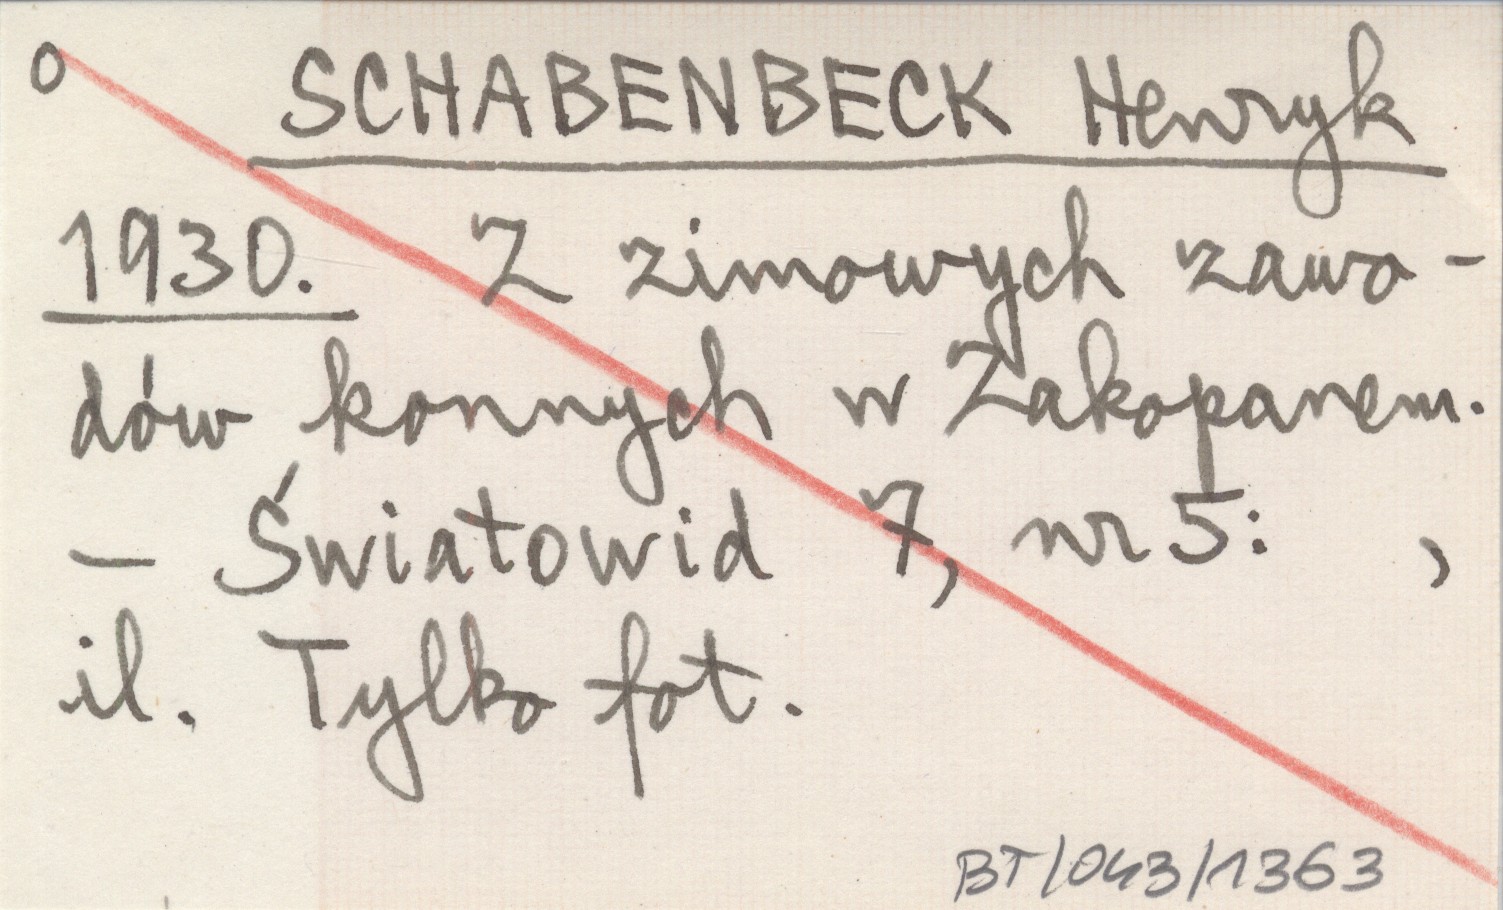 o SCHABENBECK Henryk
1930. Z zimowych zawo-
dów konnych w Zakopanem.
- Światowid 7, nr 5: ,
il. Tylko fot.
BT/043/1363